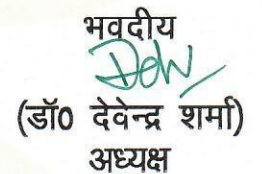 भवदीय
(डॉ0 देवेन्द्र शर्मा)
अध्यक्ष